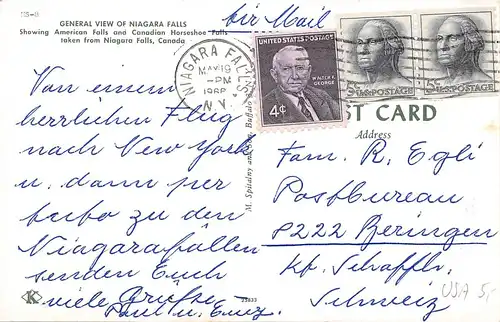 115-B
GENERAL VIEW OF NIAGARA FALLS
Showing American Falls and Canadian Horseshoe Falls
taken from Niagara Falls, Canada
Air Mail
NIAGARA FALLS
MAY 19
-PM
1966
N.Y.
UNITED STATES POSTAGE
WALTER F.
GEORGE
4¢
5¢ U.S. POSTAGE
5¢ U.S. POSTAGE
ST CARD
Address
Von einem
herrlichen Flug
nach New York
u. dann per
zu den
Niagarafällen
senden Euch
viele Grüße
Paul u.
M. Spitalny
Buffalo
K
23833
Fam. R. Egli
Postbureau
8222 Beringen
Kt. Schaffh.
Schweiz
USA 5,-